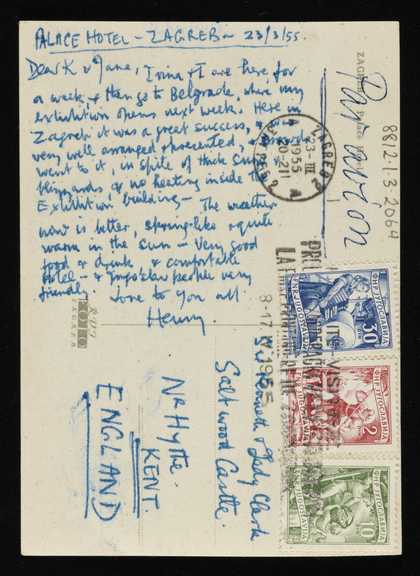 PALACE HOTEL - ZAGREB - 23/3/55.
Dear K & Jane, Irina & I are here for
a week & then go to Belgrade, where my
exhibition opens next week. Here in
Zagreb it was a great success, &
very well arranged & presented, &
went to it, in spite of thick snow &
blizzards & no heating inside the
Exhibition building - The weather
now is better, spring-like & quite
warm in the sun - Very good
food & drink, & comfortable
Hotel - & Yugoslav people very
friendly.
Love to you all
Henry
Par avion
8812.1.3.2064
ZAGREB
ZAGREB 2
23-III
1955
20-21
Sir Kenneth & Lady Clark
Saltwood Castle.
Nr Hythe.
KENT.
ENGLAND
8-17 1955
VISIT
30
2
10
ЈУГОСЛАВИЈА
JUGOSLAVIJA